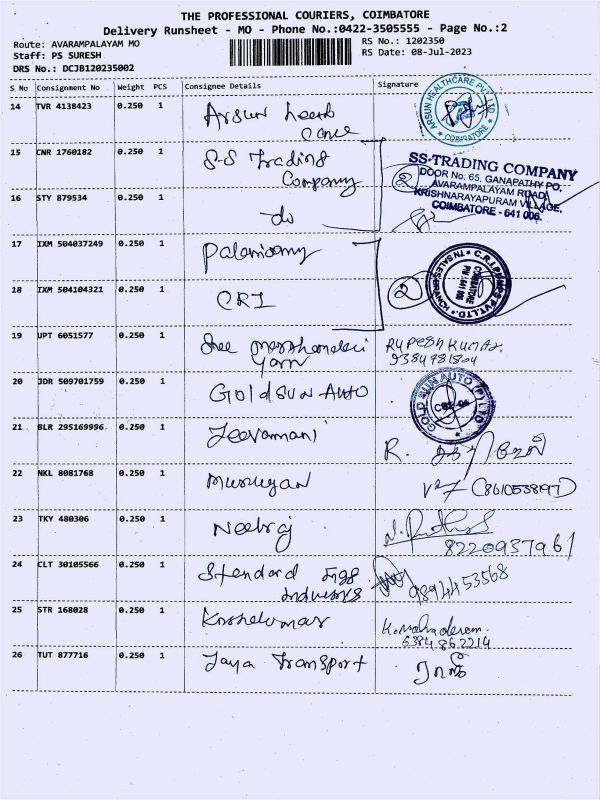 THE PROFESSIONAL COURIERS, COIMBATORE
Delivery Runsheet - MO - Phone No.:0422-3505555 - Page No.:2
Route: AVARAMPALAYAM MO
RS No.: 1202350
Staff: PS SURESH
RS Date: 08-Jul-2023
DRS No.: DCJB120235002
S No Consignment No Weight PCS Consignee Details Signature
14 TVR 4138423 0.250 1 Arsun heeth
care
ARSUN HEALTHCARE PVT. LTD
COIMBATORE
15 CNR 1760182 0.250 1 S-S Trading
Company
2
SS-TRADING COMPANY
DOOR No: 65, GANAPATHY PO,
AVARAMPALAYAM ROAD,
KRISHNARAYAPURAM VILLAGE,
COIMBATORE - 641 006.
16 STY 879534 0.250 1 do
17 IXM 504037249 0.250 1 Palanisamy
18 IXM 504104321 0.250 1 CRI
2
COIMBATORE
PIN : 641 006
19 UPT 6051577 0.250 1 Sree
yarn
RUPESH KUMAR.
9384981804
20 JDR 509701759 0.250 1 Gold SUN AUTO
GOLD SUN AUTO (P) LTD
21 BLR 295169996 0.250 1 Jeevamani
R.
22 NKL 8081768 0.250 1 Murugan
23 TKY 480306 0.250 1 Neelraj
8220937961
24 CLT 30105566 0.250 1 Standard Engg
Industries
9894453568
25 STR 168028 0.250 1
6384862214
26 TUT 877716 0.250 1 Jaya Transport